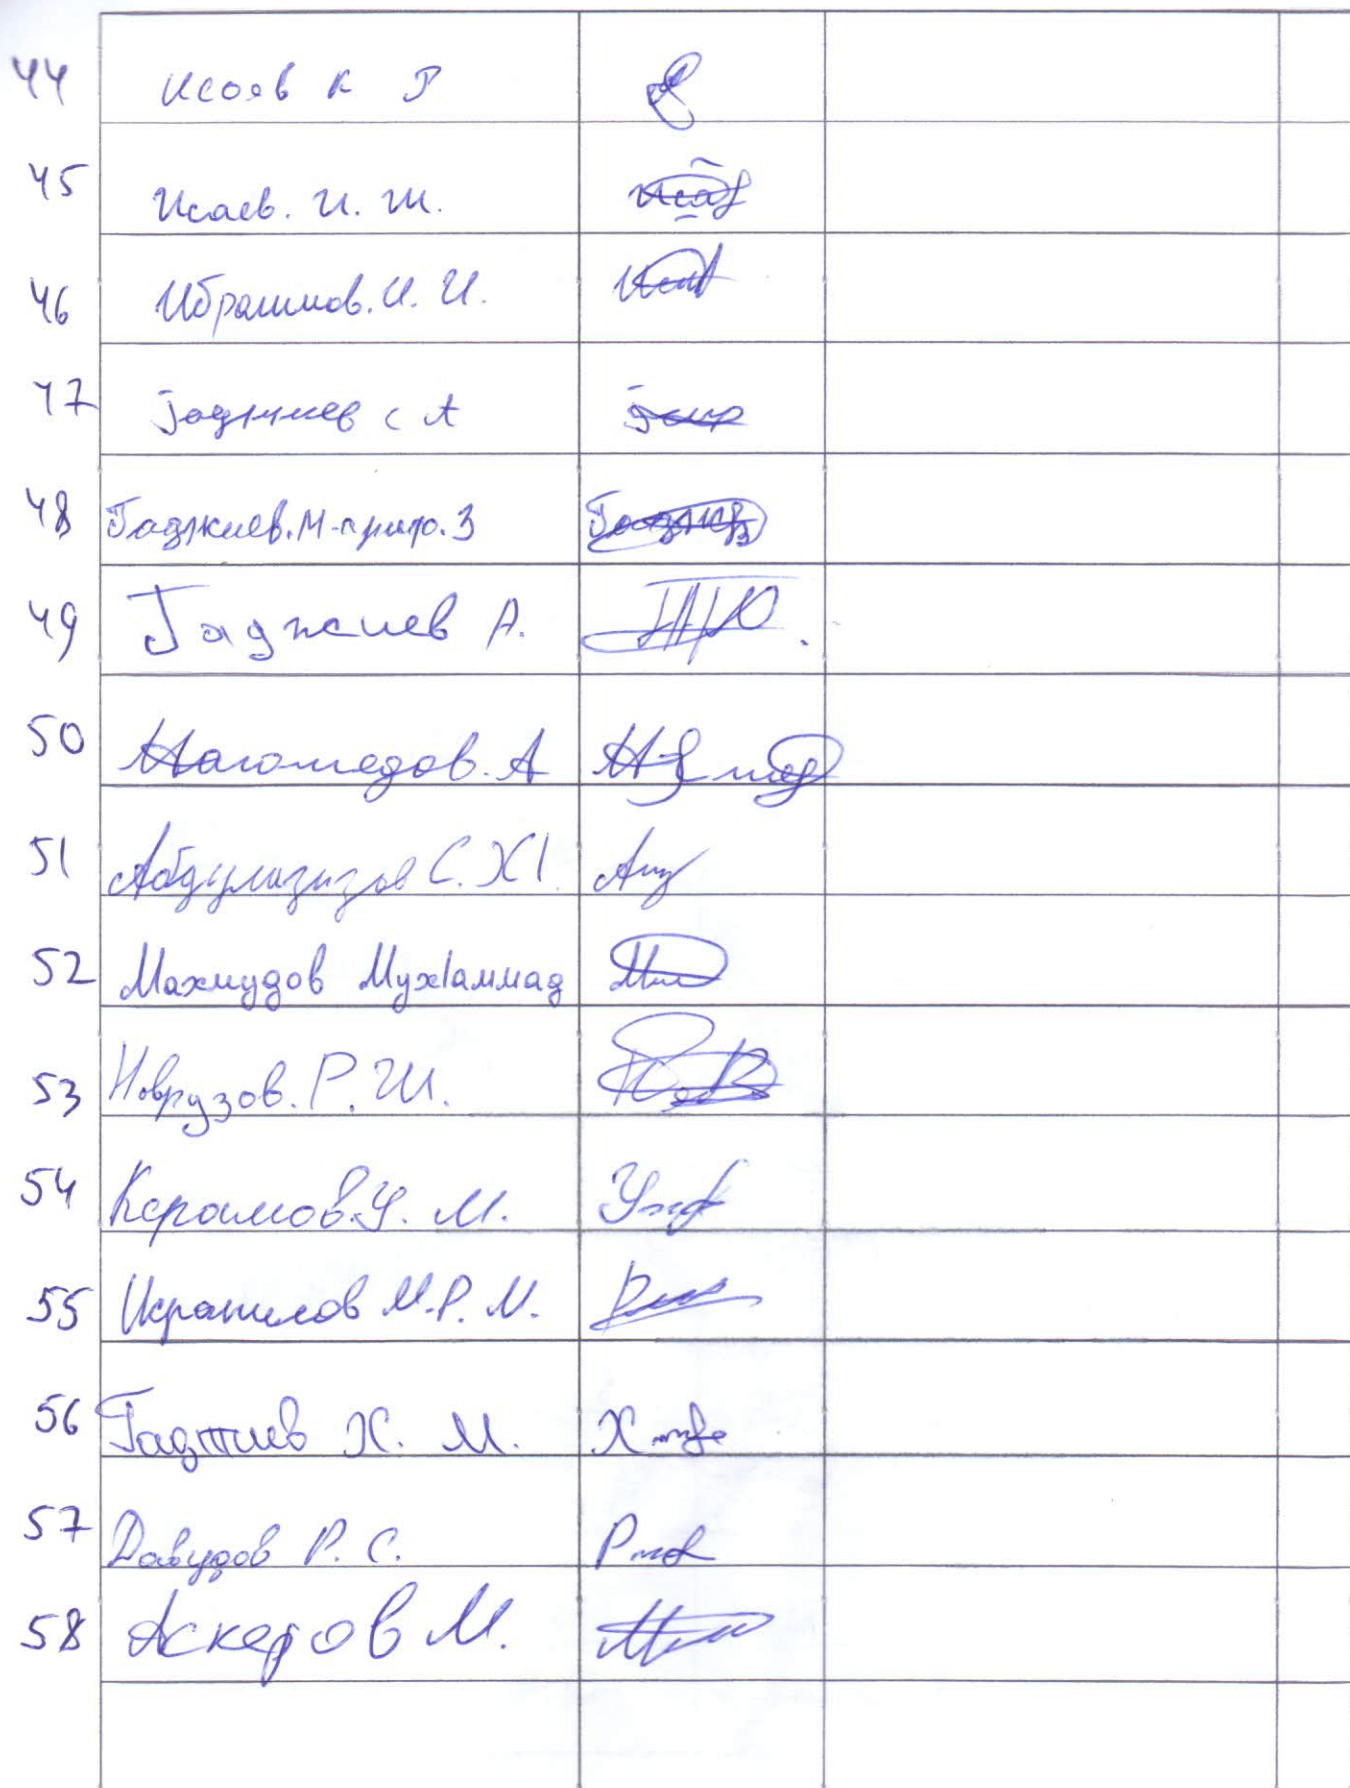 44 Исаев К Г
45 Исаев. И. Ш.
46 Ибрагимов. И. И.
47 Гаджиев С А
48 Гаджиев. М- . З
49 Гаджиев А.
50 Магомедов. А
51 Абдулазизов С. ХI.
52 Махмудов МухIаммад
53 Новрузов. Р. Ш.
54 Керамов. У. М.
55 М. Р. М.
56 Гаджиев Х. М.
57 Давудов Р. С.
58 Аскеров М.